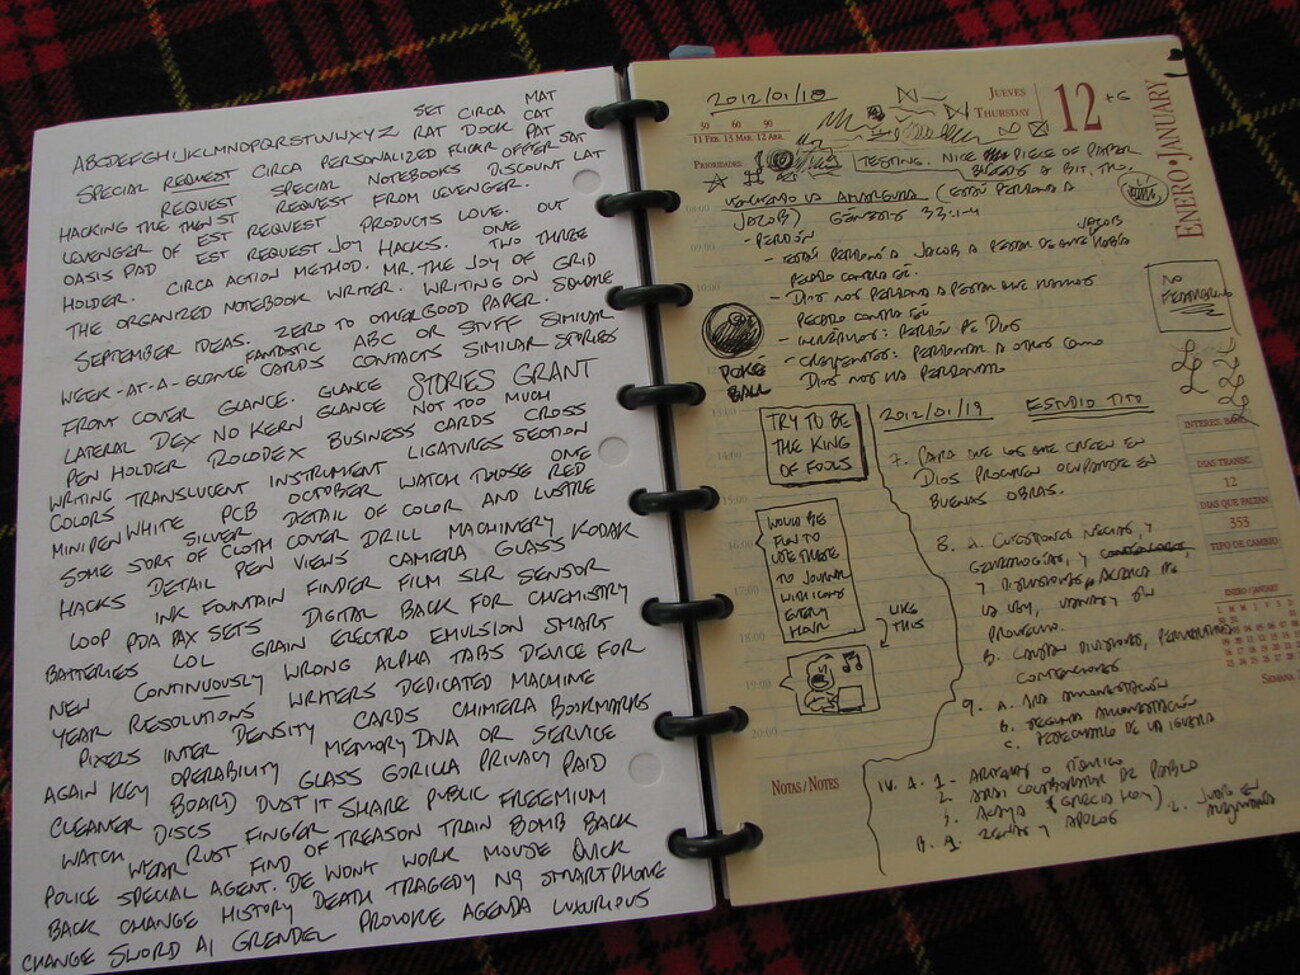 SET CIRCA MAT
ABCDEFGHIJKLMNOPQRSTUVWXYZ RAT DOCK CAT
SPECIAL REQUEST CIRCA PERSONALIZED FLICKR OFFER PAT SAT
REQUEST SPECIAL NOTEBOOKS DISCOUNT LAT
HACKING THE REQUEST FROM LEVENGER.
LEVENGER OF EST REQUEST PRODUCTS LOVE. OUT
OASIS PAD EST REQUEST JOY HACKS. ONE
HOLDER. CIRCA ACTION METHOD. MR. THE JOY OF TWO THREE
THE ORGANIZED NOTEBOOK WRITER. WRITING ON GRID
SEPTEMBER IDEAS. ZERO TO OTHER GOOD PAPER. SQUARE
FANTASTIC ABC OR STUFF SIMILAR
WEEK-AT-A-GLANCE CARDS CONTACTS SIMILAR STORIES
FRONT COVER GLANCE. GLANCE STORIES GRANT
LATERAL DEX NO KERN GLANCE NOT TOO MUCH
PEN HOLDER ROLODEX BUSINESS CARDS CROSS
WRITING TRANSLUCENT INSTRUMENT LIGATURES SECTION
COLORS OCTOBER WATCH THOSE ONE
MINIPEN WHITE PCB DETAIL OF COLOR AND RED
SILVER LUSTRE
SOME SORT OF CLOTH COVER DRILL MACHINERY
HACKS DETAIL PEN VIEWS CAMERA GLASS KODAK
INK FOUNTAIN FINDER FILM SLR SENSOR
LOOP PDA PAX SETS DIGITAL BACK FOR CHEMISTRY
BATTERIES LOL GRAIN ELECTRO EMULSION SMART
NEW CONTINUOUSLY WRONG ALPHA TABS DEVICE FOR
YEAR RESOLUTIONS WRITERS DEDICATED MACHINE
PIXERS INTER DENSITY CARDS CHIMERA BOOKMARKS
MEMORY DNA OR SERVICE
AGAIN KEY OPERABILITY GLASS GORILLA PRIVACY PAID
CLEANER BOARD DUST IT SHARE PUBLIC FREEMIUM
WATCH DISCS FINGER OF TREASON TRAIN BOMB BACK
WEAR RUST FIND
POLICE SPECIAL AGENT. DE WONT WORK MOUSE QUICK
BACK CHANGE HISTORY DEATH TRAGEDY N9 SMARTPHONE
CHANGE SWORD A1 GRENDEL PROVOKE AGENDA LUXURIOUS
2012/01/18
30 60 90
11 FEB. 13 MAR. 12 ABR.
JUEVES
THURSDAY
12 +6
ENERO • JANUARY
PRIORIDADES
TESTING. NICE PIECE OF PAPER
BLEEDS A BIT, THO.
VENCIENDO LA AMARGURA (ESAÚ PERDONA A
JACOB) GÉNESIS 33:1-4
- PERDÓN
- ESAÚ PERDONÓ A JACOB A PESAR DE QUE JACOB HABÍA
PECADO CONTRA ÉL.
- DIOS NOS PERDONA A PESAR QUE HEMOS
PECADO CONTRA ÉL
- INCRÉDULOS: PERDÓN DE DIOS
- CREYENTES: PERDONAR A OTROS COMO
DIOS NOS HA PERDONADO
NO
FEATHERING
POKÉ
BALL
08:00
09:00
10:00
13:00
14:00
15:00
16:00
17:00
18:00
19:00
20:00
TRY TO BE
THE KING
OF FOOLS
WOULD BE
FUN TO
USE THESE
TO JOURNAL
WITH ICONS
EVERY
HOUR
LIKE
THIS
2012/01/19 ESTUDIO TITO
7. PARA QUE LOS QUE CREEN EN
DIOS PROCUREN OCUPARSE EN
BUENAS OBRAS.
8. A. CUESTIONES NECIAS, Y
GENEALOGÍAS, Y CONTENCIONES,
Y DISCUSIONES ACERCA DE
LA LEY, VANAS Y SIN
PROVECHO.
B. CAUSAN DIVISIONES,
CONTENCIONES
9. A. 1RA AMONESTACIÓN
B. SEGUNDA AMONESTACIÓN
C. DESECHARLO DE LA IGLESIA
IV. A. 1- ARTEMAS O TÍQUICO
2. COLABORADOR DE PABLO
3. (GRECIA HOY)
B. 1. ZENAS Y APOLOS
2.
DIAS TRANSC.
12
DIAS QUE FALTAN
353
TIPO DE CAMBIO
ENERO / JANUARY
NOTAS / NOTES